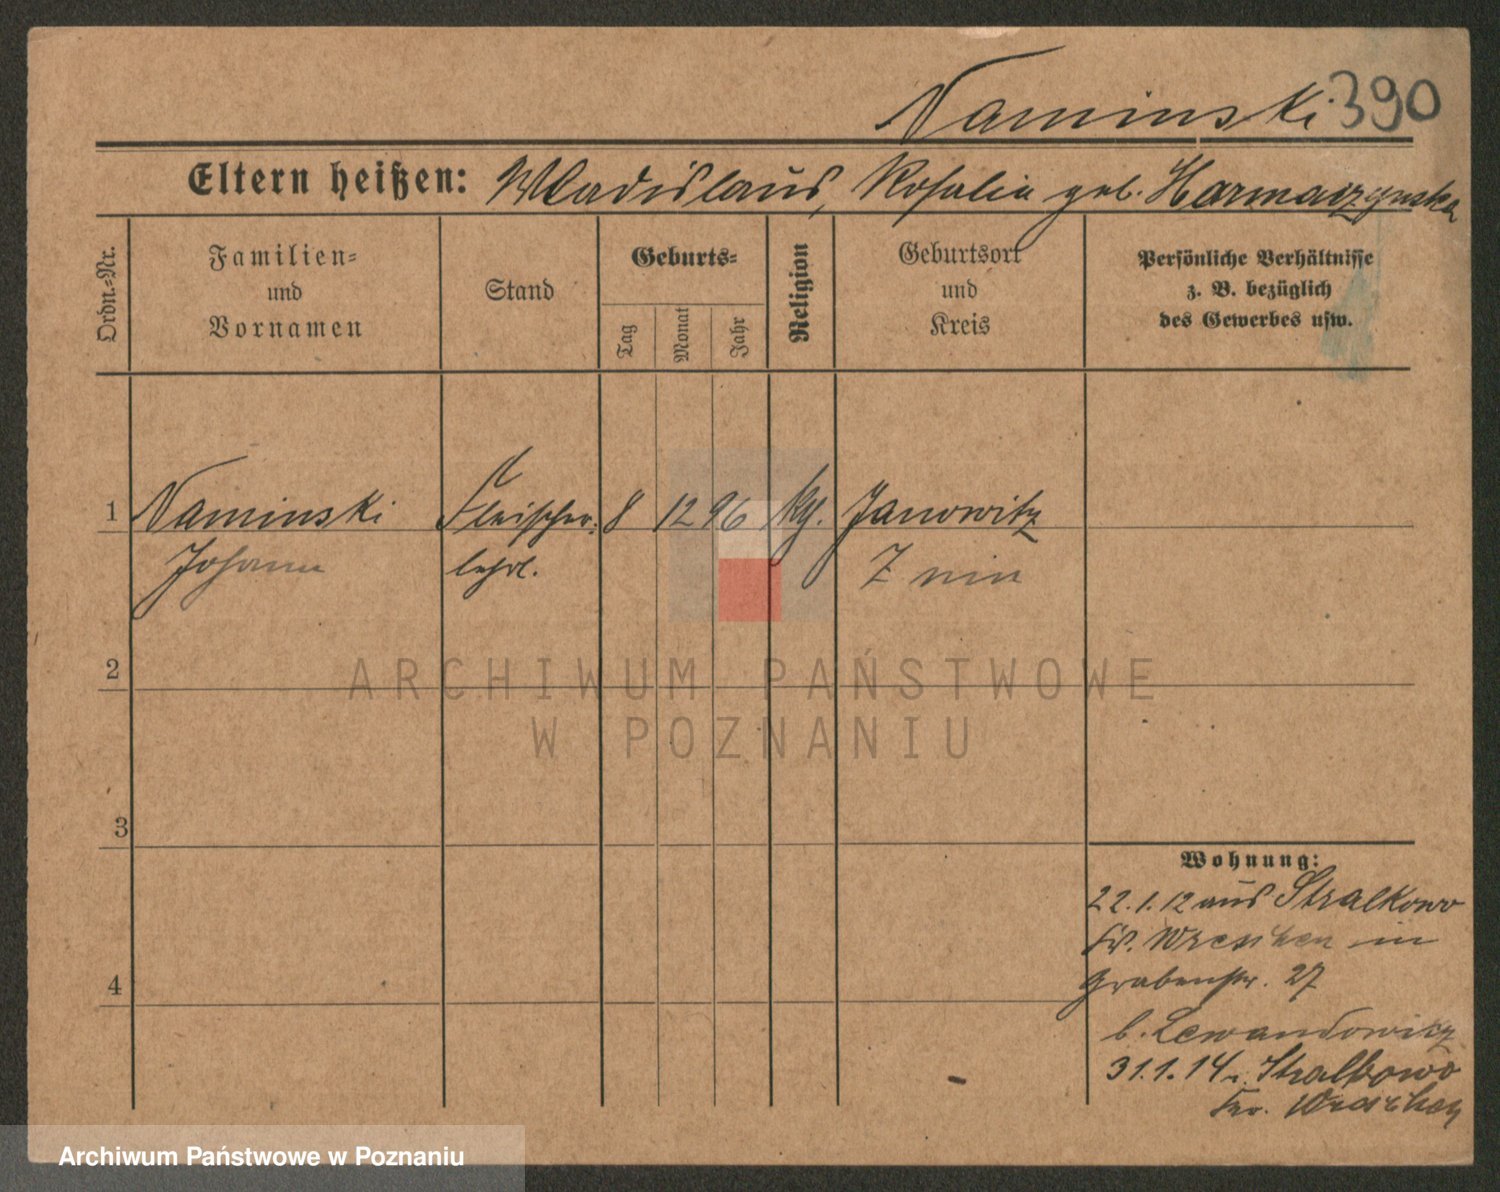 Naminski 390
Eltern heißen: Wladislaus, Rosalie geb. Harmaczynska
Ordn.-Nr.
Familien-
und
Vornamen
Stand
Geburts-
Tag
Monat
Jahr
Religion
Geburtsort
und
Kreis
Persönliche Verhältnisse
z. B. bezüglich
des Gewerbes usw.
1 Naminski Fleischer- 8 12 96 Janowitz
Johann lehrl. Znin
2
3
4
Wohnung:
22.1.12 aus Stralkowo
Kr. Wreschen in
Grabenstr. 27
b. Lewandowitz
31.1.14 n. Stralkowo
Kr. Wreschen
ARCHIWUM PAŃSTWOWE
W POZNANIU
Archiwum Państwowe w Poznaniu